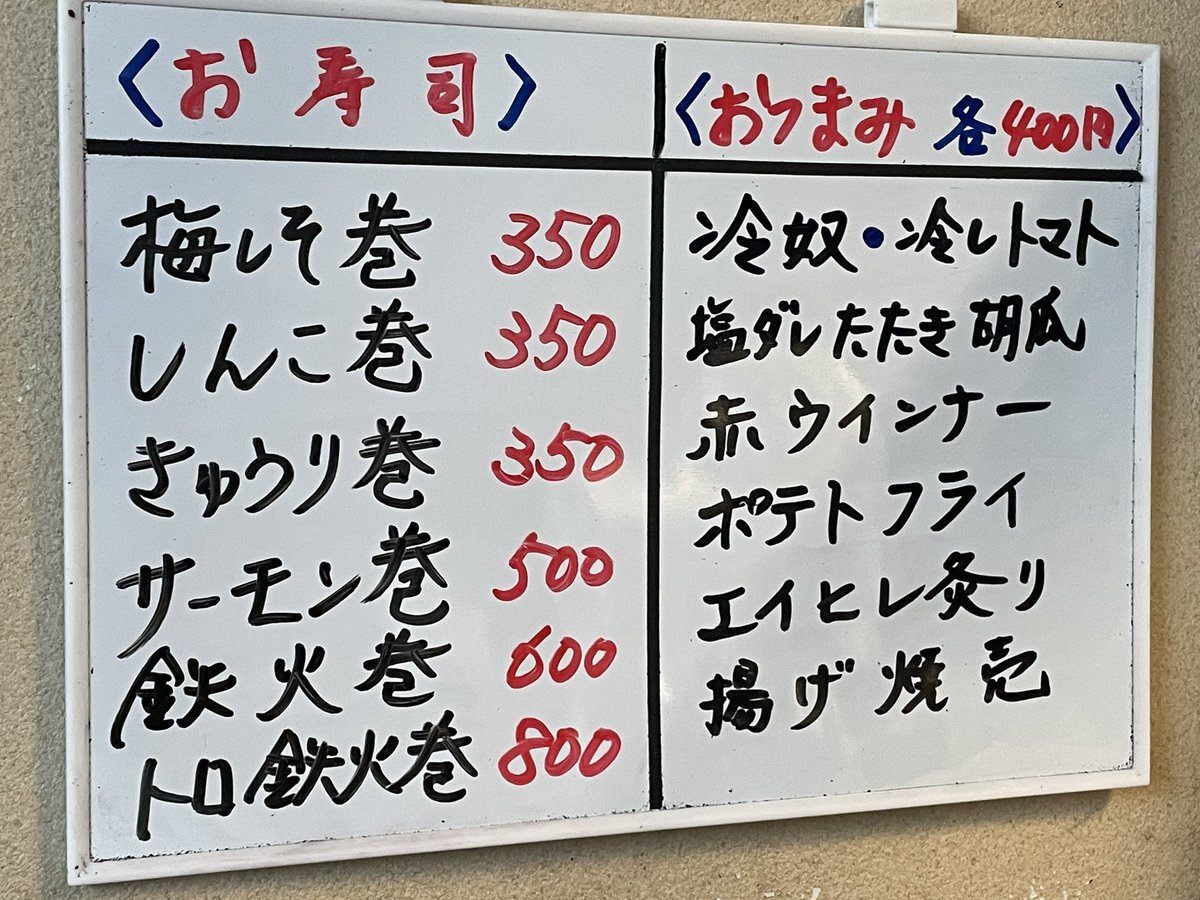 〈お寿司〉
梅しそ巻 350
しんこ巻 350
きゅうり巻 350
サーモン巻 500
鉄火巻 600
トロ鉄火巻 800
〈おつまみ 各400円〉
冷奴・冷しトマト
塩ダレたたき胡瓜
赤ウインナー
ポテトフライ
エイヒレ炙り
揚げ焼売